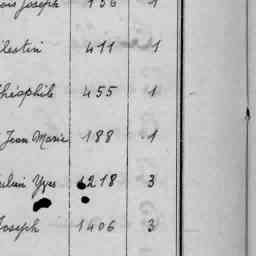 Joseph 156 1
411 1
Théophile 455 1
Jean Marie 188 1
Yves 1218 3
Joseph 1406 3